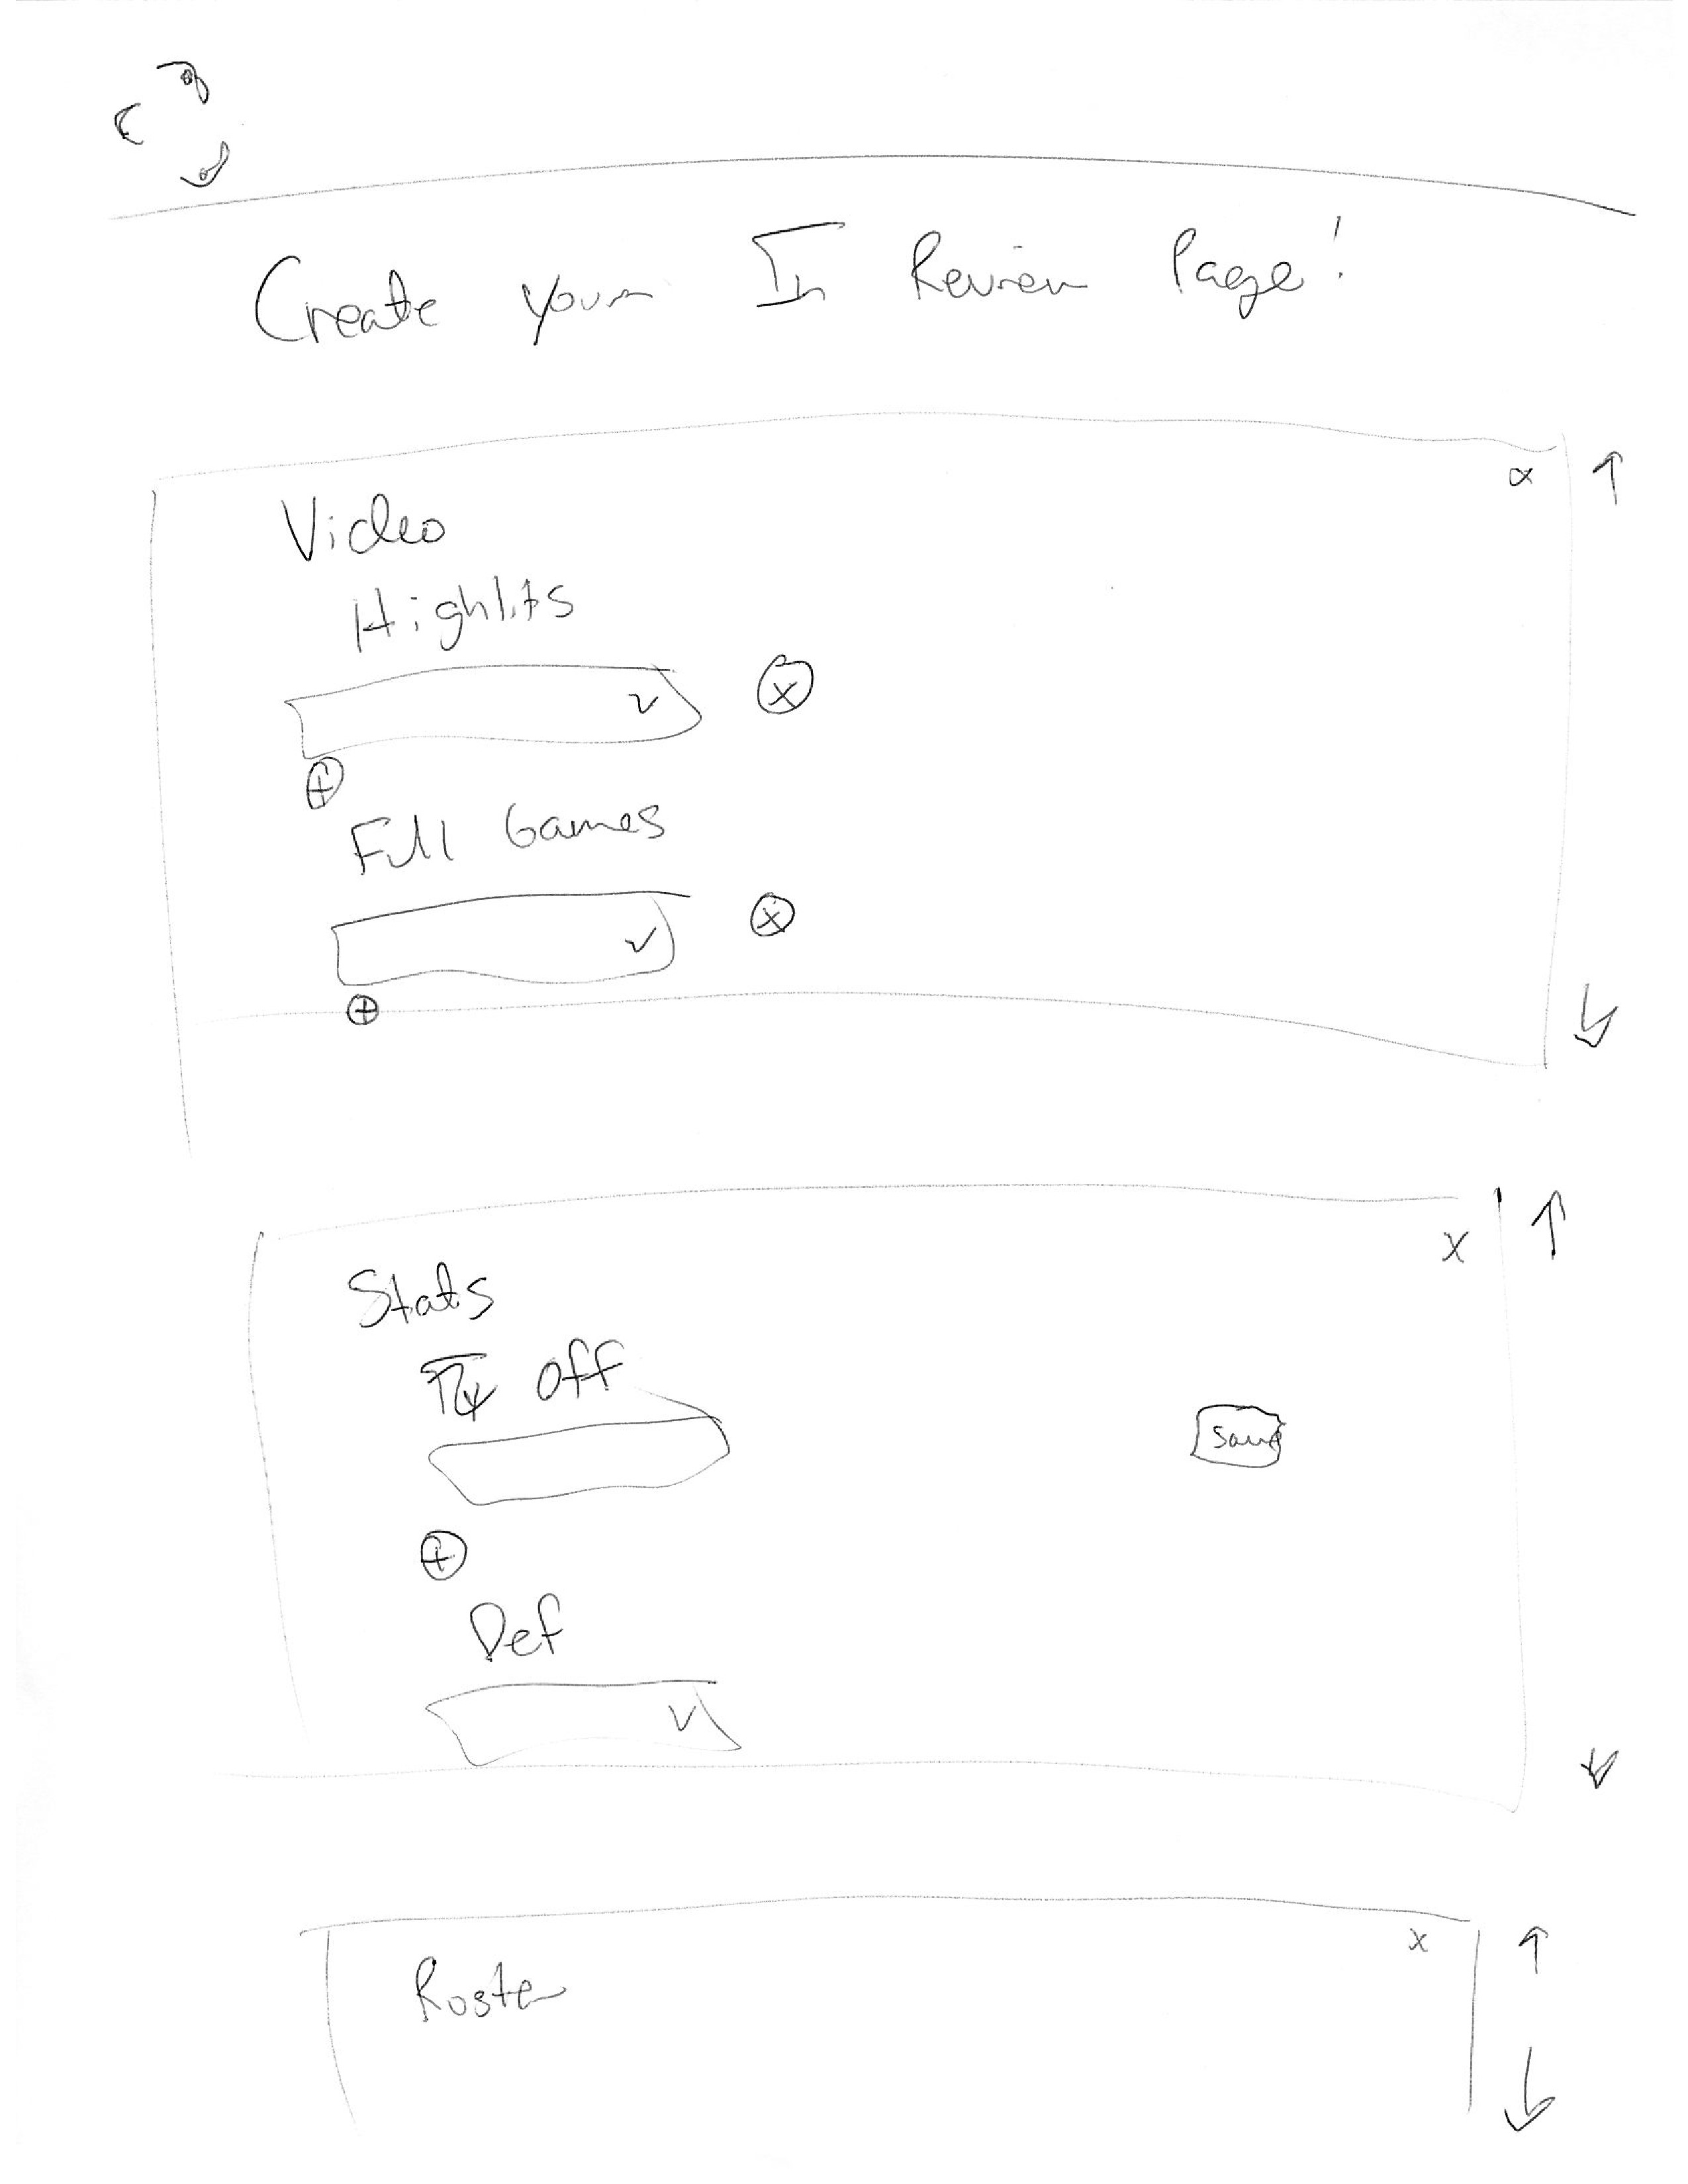 Create your In Review Page!
x
Video
Highlits
x
Full Games
x
x
Stats
Off
Save
Def
x
Roster